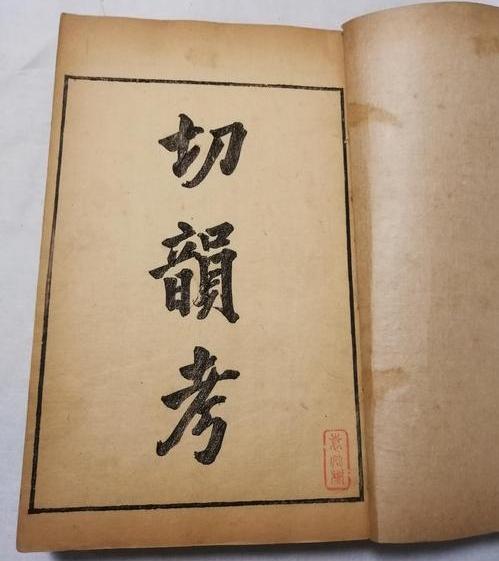 切韻考